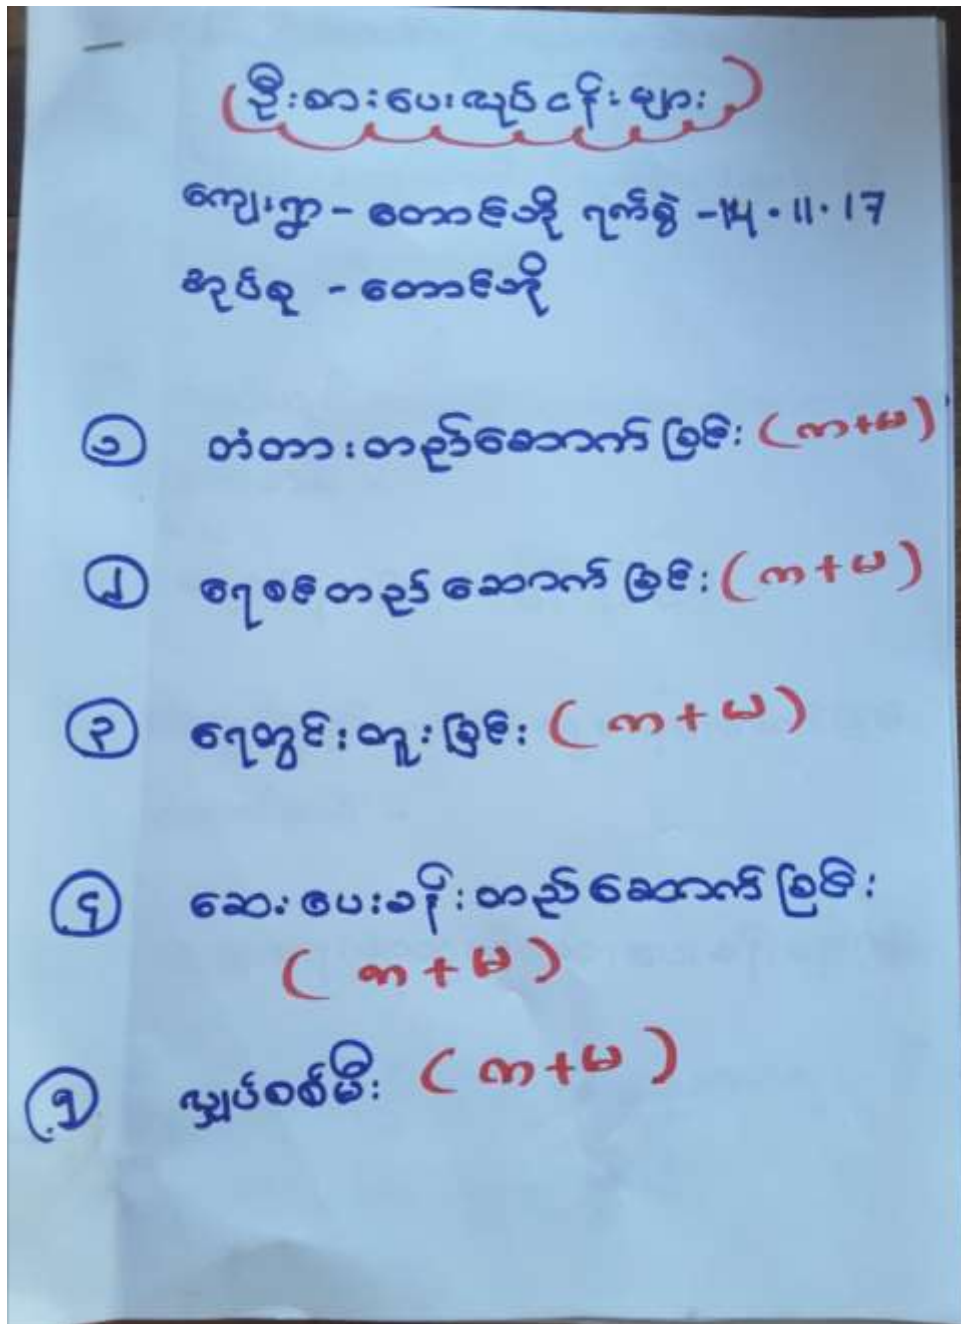 (ဦးစားပေးလုပ်ငန်းများ)
ကျေးရွာ - တောင်ဘို ရက်စွဲ - 14.11.17
အုပ်စု - တောင်ဘို
၁ တံတားတည်ဆောက်ခြင်း (ကာ+မ)
၂ ရေစင်တည်ဆောက်ခြင်း (ကာ+မ)
၃ ရေတွင်းတူးခြင်း (ကာ+မ)
၄ ဆေးပေးခန်းတည်ဆောက်ခြင်း
(ကာ+မ)
၅ လျှပ်စစ်မီး (ကာ+မ)